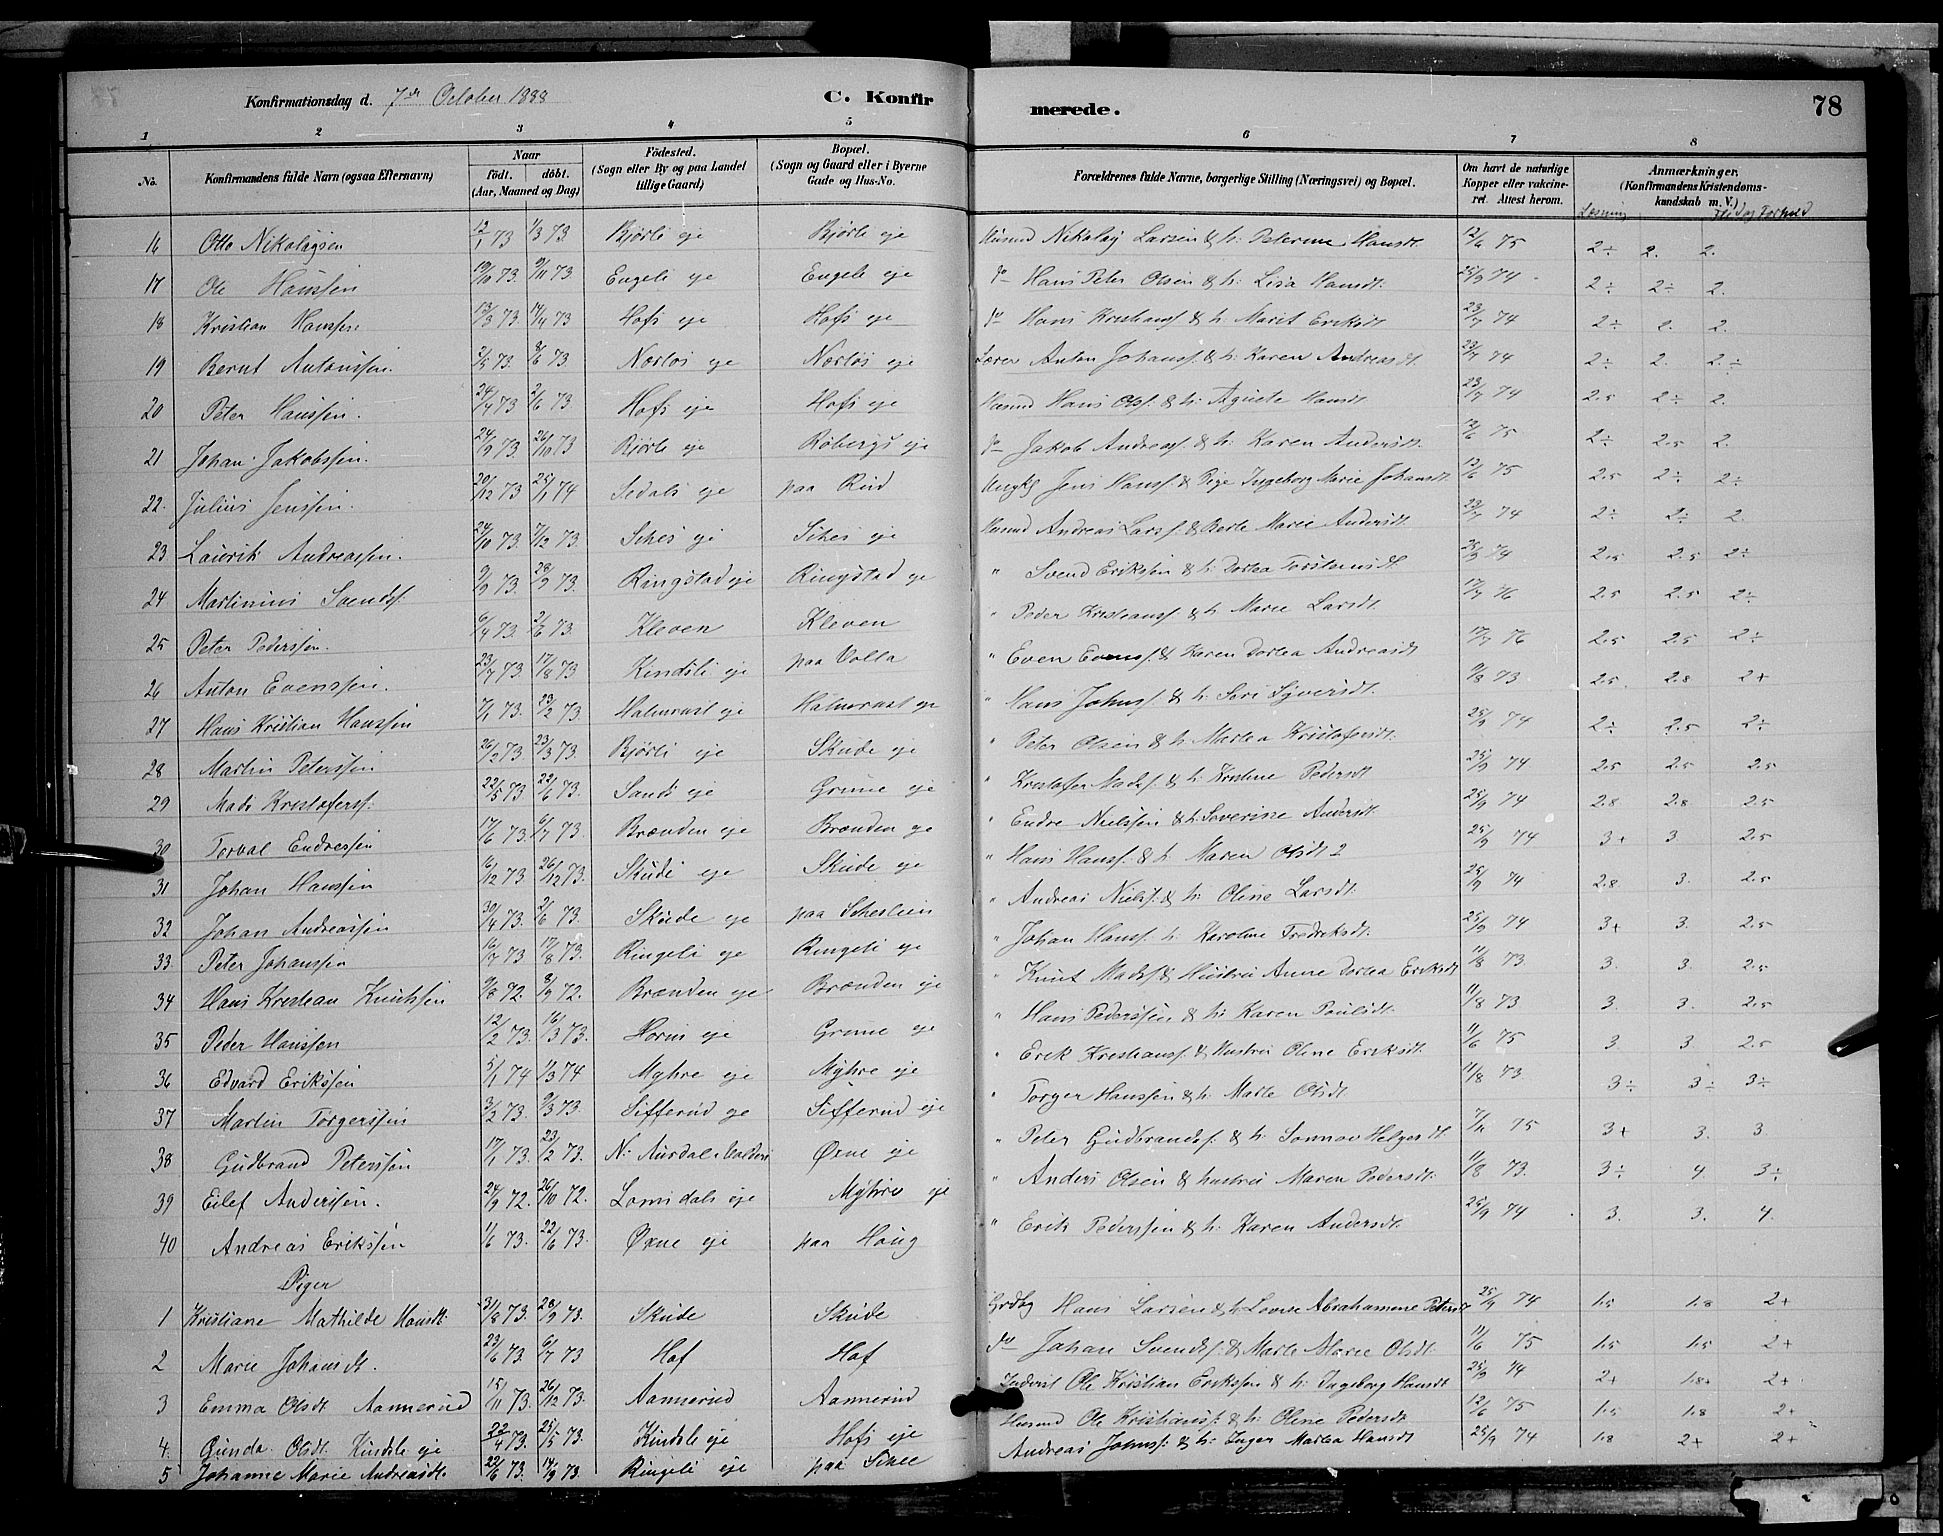 Konfirmationsdag d. 7de October 1888 C. Konfirmerede. 78
1 2 3 4 5 6 7 8
No. Konfirmandens fulde Navn (ogsaa Efternavn) Naar födt. döbt. (Aar, Maaned og Dag) Födested. (Sogn eller By og paa Landet tillige Gaard) Bopæl. (Sogn og Gaard eller i Byerne Gade og Hus-No. Forældrenes fulde Navne, borgerlige Stilling (Næringsvei) og Bopæl. Om havt de naturlige Kopper eller vakcineret. Attest herom. Anmærkninger. (Konfirmandens Kristendomskundskab m. V.)
Læsning Flid og Forhold
16 Otto Nikolaysen 12/1 73 1/3 73 Bjørli eje Bjørli eje Husmd Nikolay Larsen & h: Peterine Hansdt. 12/6 75 2÷ 2. 2.
17 Ole Hanssen 19/10 73 9/11 73 Engeli eje Engeli eje do Hans Peter Olsen & h: Lisa Hansdt. 25/9 74 2÷ 2÷ 2.
18 Kristian Hanssen 13/3 73 14/4 73 Hofs eje Hofs eje do Hans Kristians. & h: Marit Eriksdt. 23/7 74 2÷ 2. 2.
19 Bernt Antonssen. 2/5 73 8/6 73 eje eje Lærer Anton Johans. & h: Karen Andreasdt. 23/7 74 2÷ 2. 2.÷
20 Peter Hanssen. 24/4 73 2/6 73 Hofs eje Hofs eje Husmd Hans Ols. & h: Agnete Hansdt. 23/7 74 2.5 2÷ 2.
21 Johan Jakobssen. 24/9 73 26/10 73 Bjørli eje Røbergs eje do Jakob Andreas. & h: Karen Andersdt. 12/6 75 2÷ 2.5 2.
22. Julius Jenssen. 20/12 73 25/1 74 Sedals eje paa Rud Ungk. Jens Hans. & Pige Ingeborg Marie Johansdt. 12/6 75 2.5 2÷ 2÷
23 Lauritz Andreassen. 24/10 73. 7/12 73. eje eje Husmd Andreas Lars. & Berte Marie Andersdt. 23/7 74 2÷ 2÷ 2.
24 Martinius Svends. 9/9 73. 28/9 73. Ringstad eje Ringstad eje " Svend Erikssen & h: Dortea Torstensdt. 25/9 74 2.5 2.5 2÷
25 Peter Pederssen. 6/4 73. 2/6 73. Kleven Kleven " Peder Kristians. & h: Marie Larsdt. 17/7 76 2.5 2.5 2÷
26 Anton Evenssen. 23/7 73. 17/8 73 Kindsli eje paa Volla " Even Evens. & Karen Dortea Andreasdt 17/7 76 2.5 2.5 2÷
27 Hans Kristian Hanssen 7/1 73. 23/2 73. Halmrast eje Halmrast eje " Hans Johns. & h: Siri Syversdt. 9/8 73. 2.5. 2.8 2+
28 Martin Peterssen 26/2 73. 23/3 73. Bjørli eje Skude eje " Peter Olsen & h: Martea Kristofersdt. 25/9 74 2÷ 2.5 2÷
29 Mads Kristofers. 22/5 73. 22/6 73. Sands eje Grime eje " Kristofer Mads. & h: Kristine Pedersdt 25/9 74 2.5 2.5 2.5
30 Torval Endressen 17/6 73. 6/7 73. Brænden eje Brænden eje " Endre Nielssen & h: Severine Andersdt. 25/9 74 2.8 2.8 2.5
31 Johan Hanssen 6/12 73. 26/12 73. Skude eje Skude eje " Hans Hans. & h. Maren Olsdt 2 25/9 74 3+ 3. 2.5
32 Johan Andreassen 30/4 73. 2/6 73. Skude eje paa " Andreas Niels. & h: Oline Larsdt. 25/9 74 2.8 3. 2.5
33. Peter Johanssen 16/7 73 17/8 73. Ringeli eje Ringeli eje " Johan Hans. h: Karoline Fredriksdt. 25/9 74 3+ 3. 2.5
34 Hans Kristian Knutssen 9/8 72. 8/9 72. Brænden eje Brænden eje " Knut Mads. & Hustru Anne Dortea Eriksdt 11/8 73 3. 3. 2.5
35 Peder Hanssen 12/2 73. 16/3 73. Horns eje Grime eje " Hans Pederssen & h: Karen Paulsdt. 11/8 73 3. 3. 2.5
36 Edvard Erikssen 5/1 74 1/3 74 Myhre eje Myhre eje " Erik Kristians. & Hustru Oline Eriksdt. 11/6 75 3. 3 2.5
37 Martin Torgerssen 3/2 73. 9/3 73. Sifferud eje Sifferud eje " Torger Hanssen & h: Marte Olsdt. 11/8 73 3÷ 3÷ 3÷
38 Gudbrand Peterssen 17/1 73. 23/2 73. N. Aurdal Valders Øxne eje " Peter Gudbrands. & h. Sonnov Helgesdt. 7/11 75 3+ 3. 3
39 Eilef Anderssen. 24/9 72. 26/10 72. Lomsdals eje Myhre eje " Anders Olsen & hustru Maren Pedersdt. 11/8 73. 3÷ 4. 3÷
40 Andreas Erikssen 1/6 73. 22/6 73. Øxne eje paa Houg " Erik Pederssen & h. Karen Andersdt. 25/9 74 3. 3. 4.
Piger
1 Kristiane Mathilde Hansdt. 31/8 73. 28/9 73. Skude Skude Hans Larsen & h: Lovise Abrahamine Petersdt 25/9 74 1.5 1.8 2+
2 Marie Johansdt. 23/6 73. 6/7 73 Hof Hof do Johan Svends. & Marte Marie Olsdt. 11/6 75 1.5 1.5 2+
3 Emma Olsdt. Aannerud 15/11 73. 26/12 73. Aannerud Aannerud Inderst Ole Kristian Erikssen & h: Ingeborg Hansdt 25/9 74 2+ 1.8+ 2+
4. Gunda Olsdt. Kindsli eje 22/4 73. 25/5 73. Kindsli eje Hofs eje Husmd Ole Kristians. & h: Oline Pedersdt 12/6 75 1.5 1.8 2+
5 Johanne Marie Andreasdt. 22/6 73. 14/9 73. Ringeli eje paa Andreas Johns. & h: Inger Martea Hansdt 25/9 74 1.8 2+ 2+